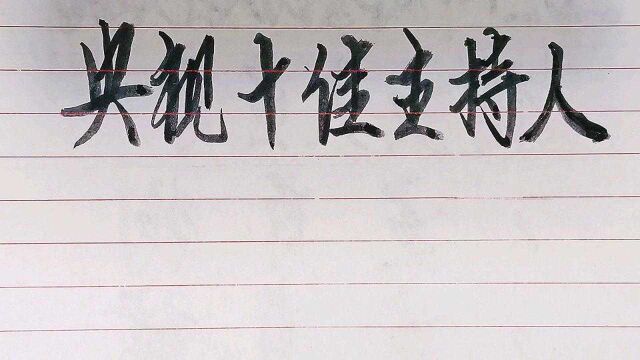 央视十佳主持人